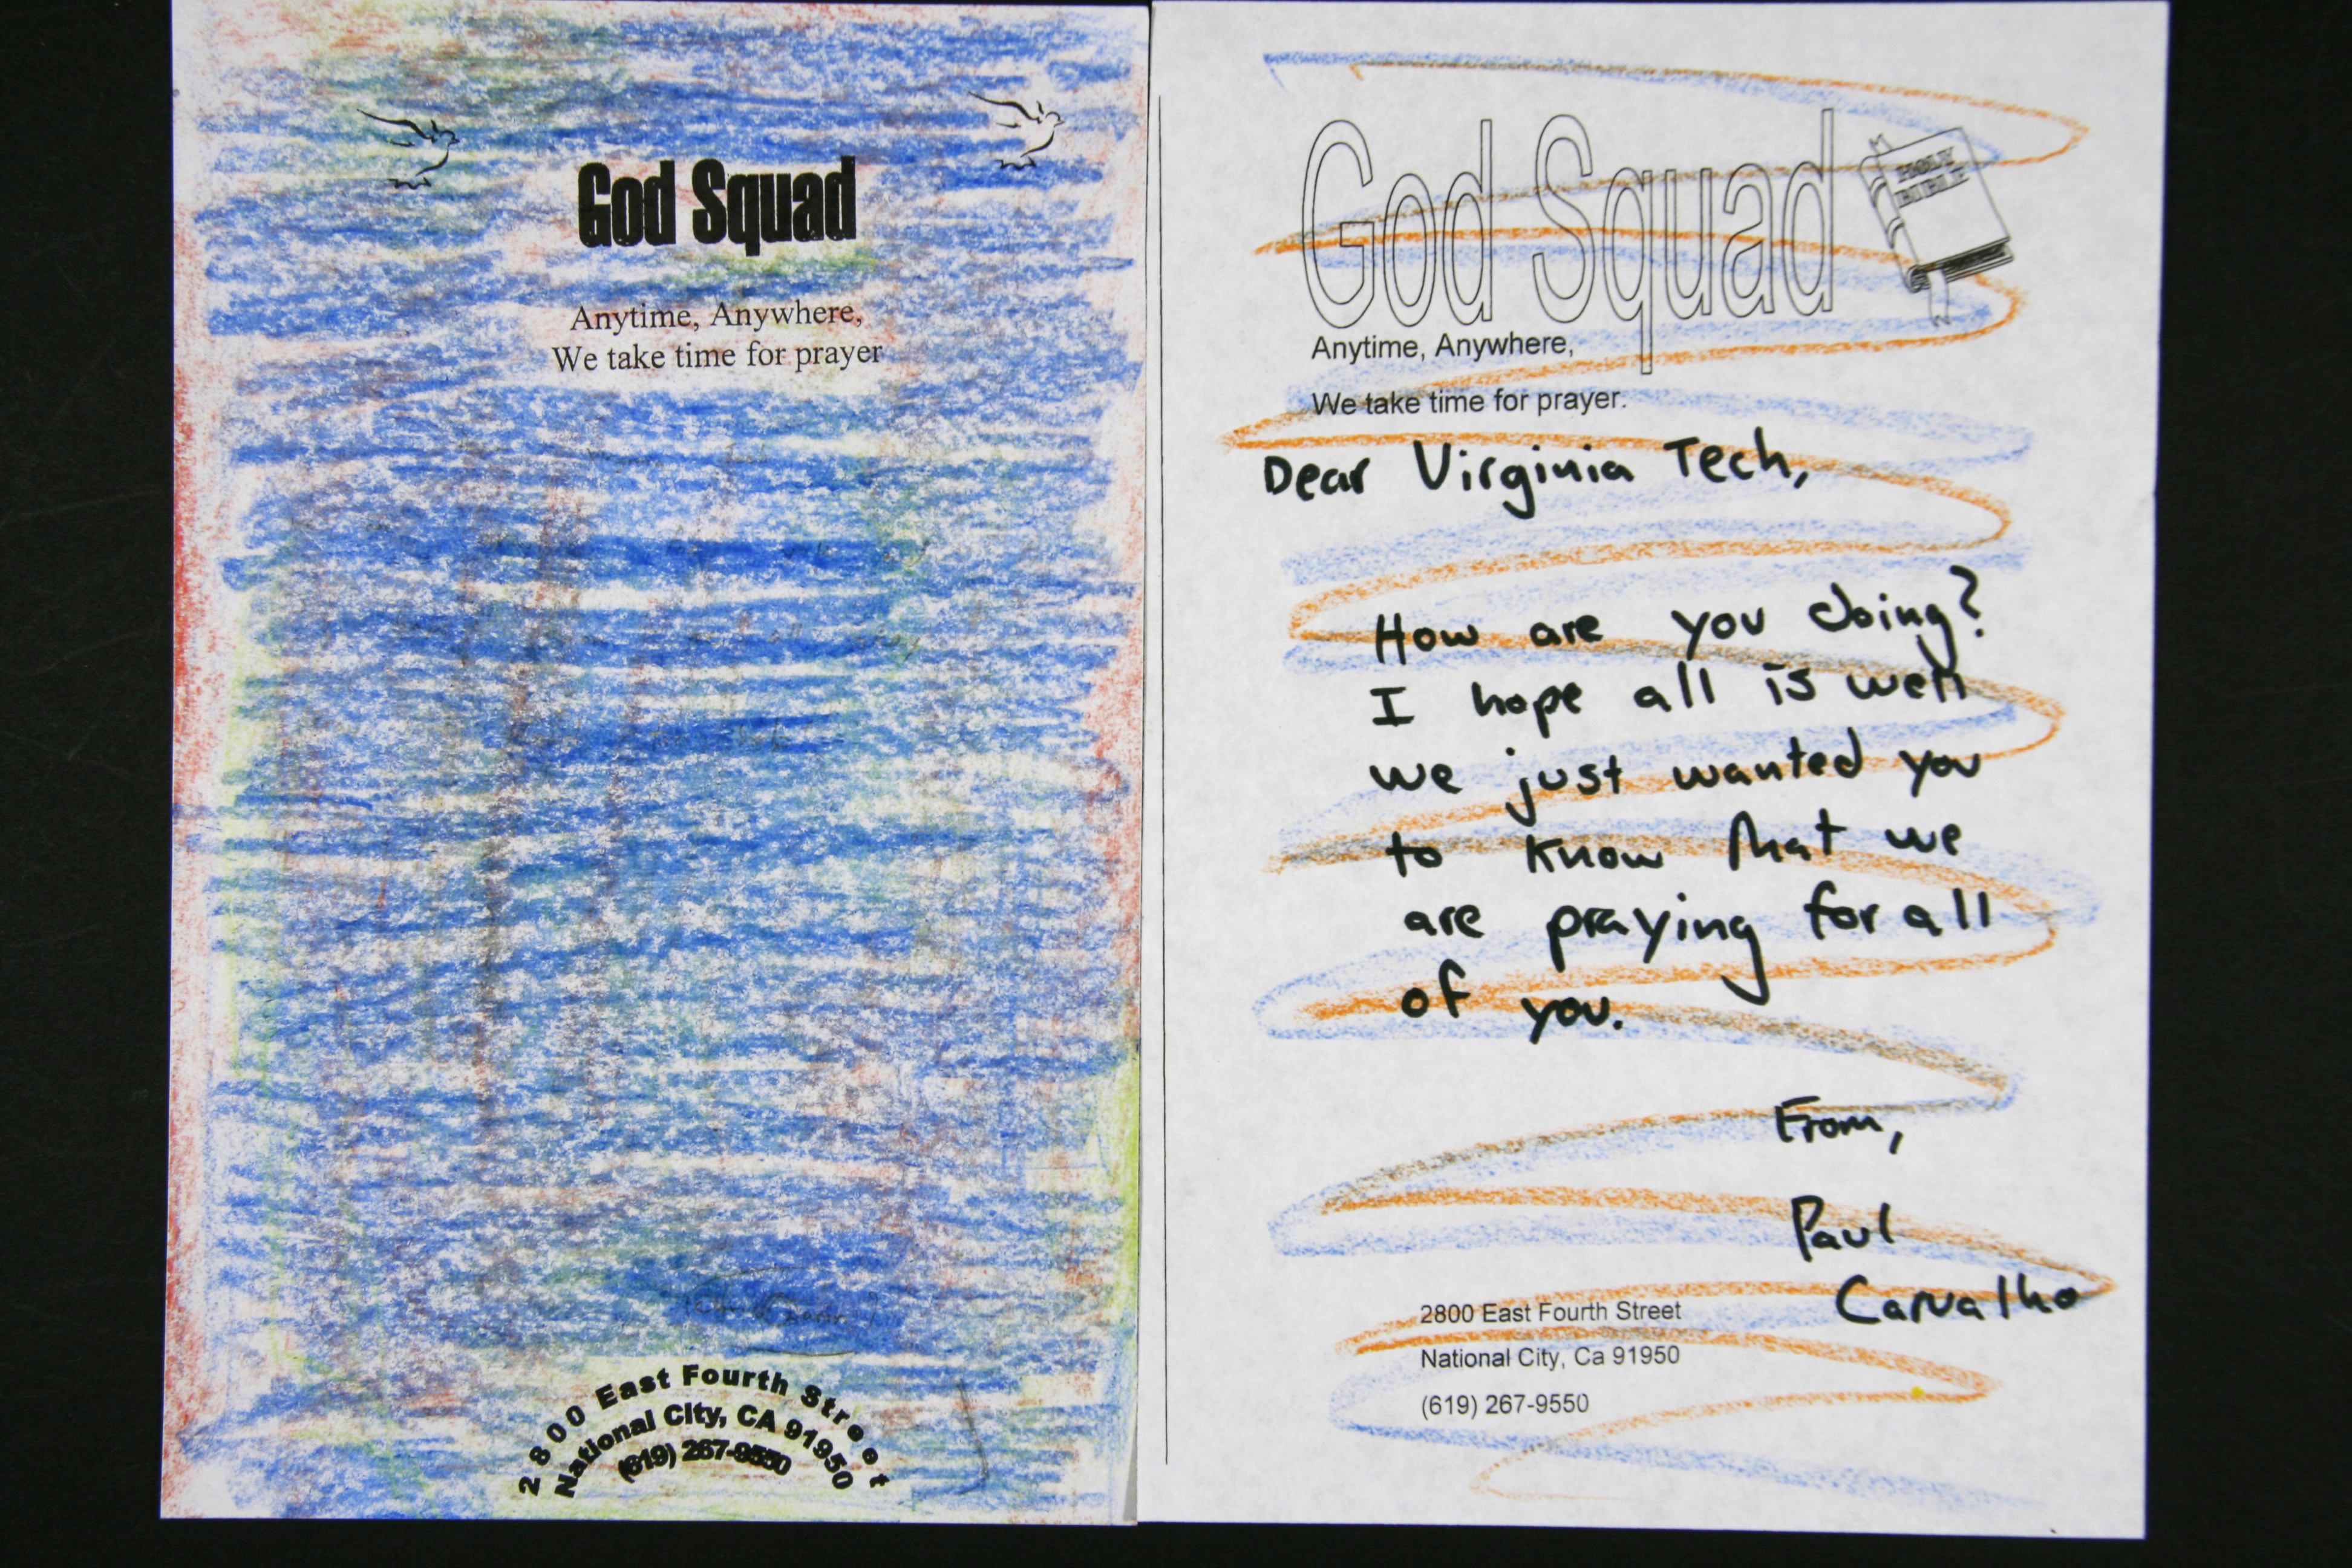 God Squad
Anytime, Anywhere,
We take time for prayer
2800 East Fourth Street
National City, CA 91950
(619) 267-9550
God Squad
HOLY
BIBLE
Anytime, Anywhere,
We take time for prayer.
Dear Virginia Tech,
How are you doing?
I hope all is well
we just wanted you
to know that we
are praying for all
of you.
From,
Paul
Carvalho
2800 East Fourth Street
National City, Ca 91950
(619) 267-9550